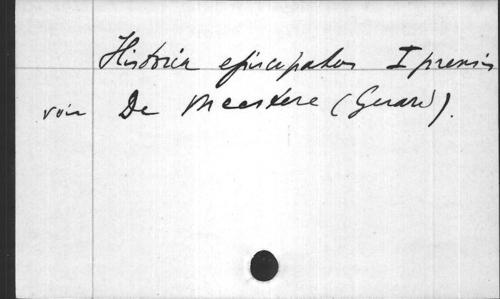 Historia episcopatus Iprensis
voir De Meestere (Gerard).